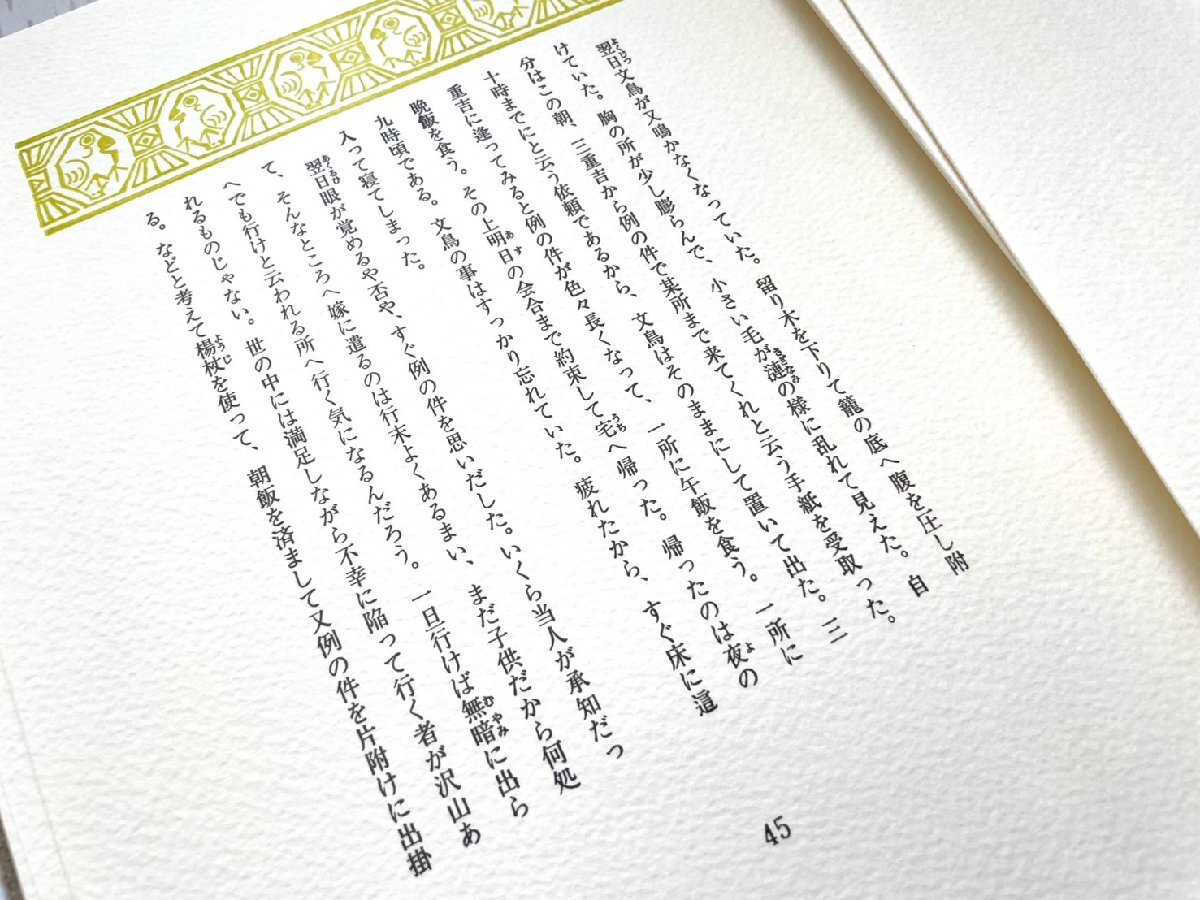 翌日文鳥が又鳴かなくなっていた。留り木を下りて籠の底へ腹を圧し附
けていた。胸の所が少し膨らんで、小さい毛が漣の様に乱れて見えた。自
分はこの朝、三重吉から例の件で某所まで来てくれと云う手紙を受取った。
十時までにと云う依頼であるから、文鳥はそのままにして置いて出た。三
重吉に逢ってみると例の件が色々長くなって、一所に午飯を食う。一所に
晩飯を食う。その上明日の会合まで約束して宅へ帰った。帰ったのは夜の
九時頃である。文鳥の事はすっかり忘れていた。疲れたから、すぐ床に這
入って寝てしまった。
翌日眼が覚めるや否や、すぐ例の件を思いだした。いくら当人が承知だっ
て、そんなところへ嫁に遣るのは行末よくあるまい、まだ子供だから何処
へでも行けと云われる所へ行く気になるんだろう。一旦行けば無暗に出ら
れるものじゃない。世の中には満足しながら不幸に陥って行く者が沢山あ
る。などと考えて楊枝を使って、朝飯を済まして又例の件を片附けに出掛
45